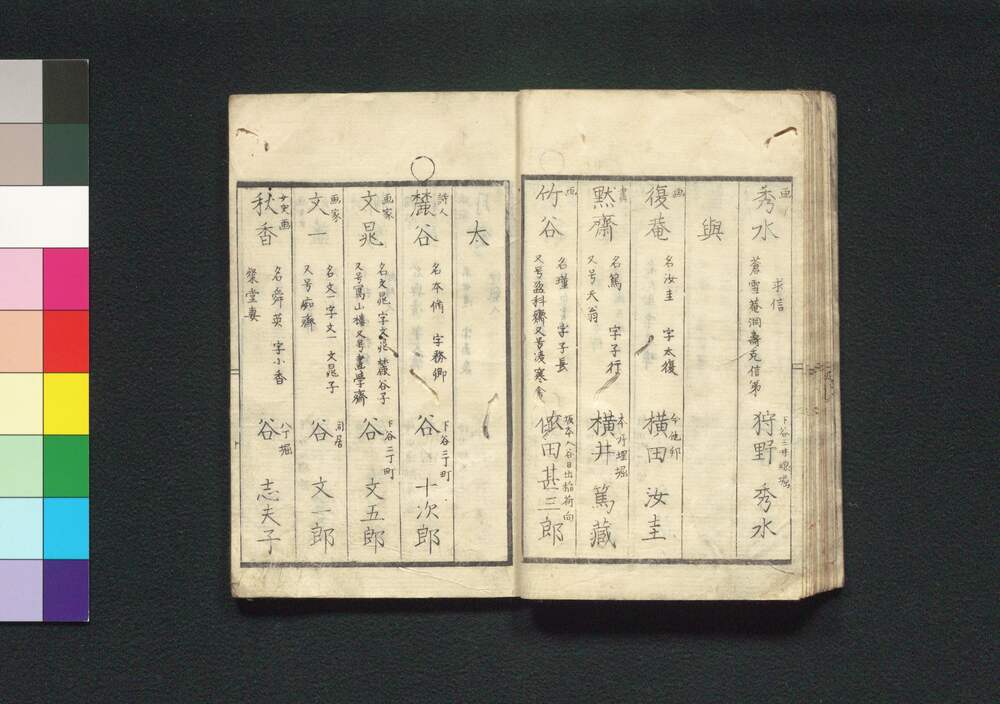 画 秀水
求信
蒼雪菴洞壽克信弟
下谷三井眼
狩野 秀水
與
画 復菴
名汝圭 字太復
横田 汝圭
黙齋
名篤 字子行
又号天翁
横井 篤藏
画 竹谷
名瑾 字子長
又号盈科齋又号凌寒舎
坂本入谷日出稲荷向
依田甚三郎
太
詩人 麓谷
名本脩 字務卿
下谷二丁町
谷 十次郎
画家 文晁
名文晁 字文晁 麓谷子
又号寫山樓又号畫學齋
下谷二丁町
谷 文五郎
画家 文一
名文一 字文一 文晁子
又号痴齋
同居
谷 文一郎
女史画 秋香
名舜英 字小香
棨堂妻
八丁堀
谷 志夫子